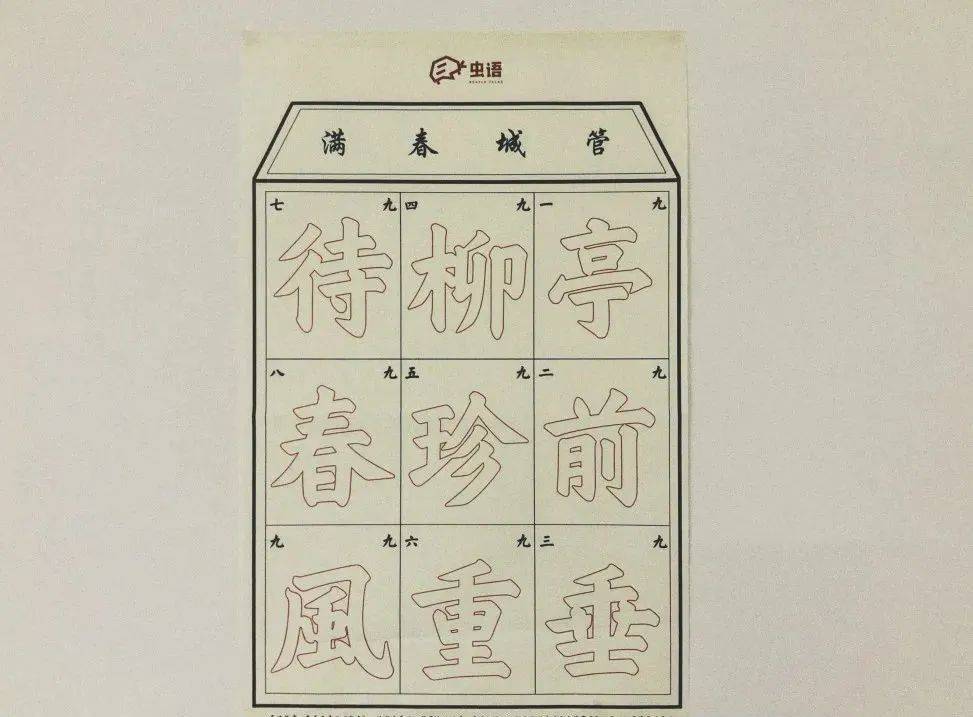 虫语
管城春满
一九
亭
二九
前
三九
垂
四九
柳
五九
珍
六九
重
七九
待
八九
春
九九
風